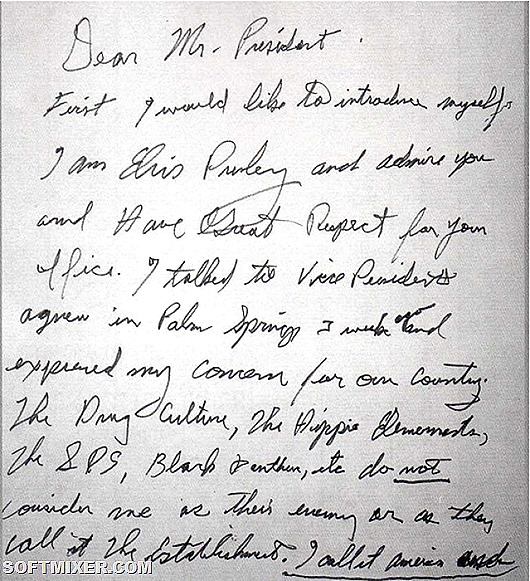 Dear Mr. President.
First I would like to introduce myself.
I am Elvis Presley and admire you
and Have Great Respect for your
office. I talked to Vice President
agnew in Palm Springs 3 weeks ago and
expressed my concern for our country.
The Drug Culture, The Hippie Elements,
The SDS, Black Panthers, etc do not
consider me as their enemy or as they
call it The Establishment. I call it america and
SOFTMIXER.COM